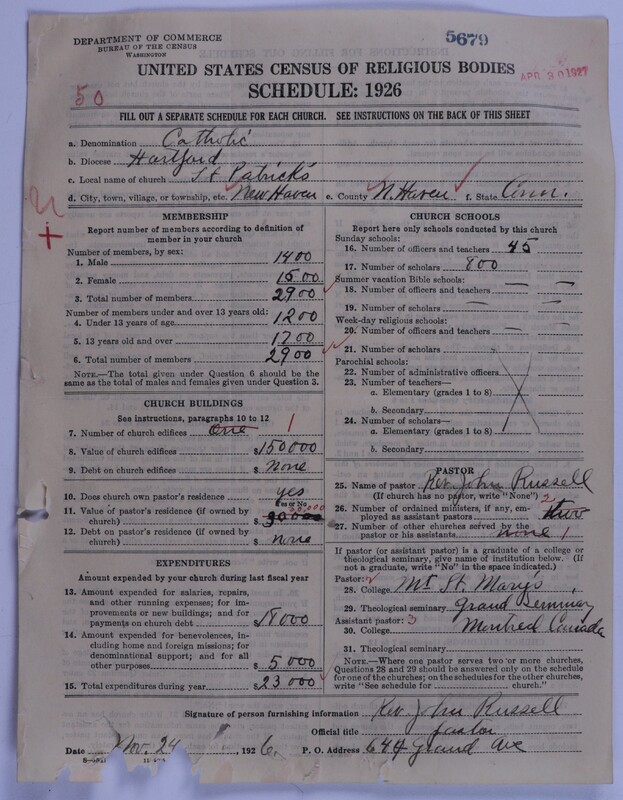 DEPARTMENT OF COMMERCE
BUREAU OF THE CENSUS
WASHINGTON
5679
UNITED STATES CENSUS OF RELIGIOUS BODIES
APR 30 1927
SCHEDULE: 1926
50
FILL OUT A SEPARATE SCHEDULE FOR EACH CHURCH. SEE INSTRUCTIONS ON THE BACK OF THIS SHEET
a. Denomination Catholic
b. Diocese Hartford
c. Local name of church St Patrick's
d. City, town, village, or township, etc. New Haven e. County N. Haven f. State Conn.
MEMBERSHIP
Report number of members according to definition of
member in your church
Number of members, by sex:
1. Male 1400
2. Female 1500
3. Total number of members 2900
Number of members under and over 13 years old:
4. Under 13 years of age 1200
5. 13 years old and over 1700
6. Total number of members 2900
NOTE.—The total given under Question 6 should be the
same as the total of males and females given under Question 3.
CHURCH BUILDINGS
See instructions, paragraphs 10 to 12
7. Number of church edifices One 1
8. Value of church edifices $150000
9. Debt on church edifices $ None
10. Does church own pastor's residence yes
Yes or No
11. Value of pastor's residence (if owned by
church) $
12. Debt on pastor's residence (if owned by
church) $ none
EXPENDITURES
Amount expended by your church during last fiscal year
13. Amount expended for salaries, repairs,
and other running expenses; for im-
provements or new buildings; and for
payments on church debt $18000
14. Amount expended for benevolences,
including home and foreign missions; for
denominational support; and for all
other purposes $5000
15. Total expenditures during year $23000
CHURCH SCHOOLS
Report here only schools conducted by this church
Sunday schools:
16. Number of officers and teachers 45
17. Number of scholars 800
Summer vacation Bible schools:
18. Number of officers and teachers — —
19. Number of scholars — —
Week-day religious schools:
20. Number of officers and teachers — —
21. Number of scholars
Parochial schools:
22. Number of administrative officers
23. Number of teachers—
a. Elementary (grades 1 to 8)
b. Secondary
24. Number of scholars—
a. Elementary (grades 1 to 8)
b. Secondary
PASTOR
25. Name of pastor Rev. John Russell
(If church has no pastor, write "None")
26. Number of ordained ministers, if any, em-
ployed as assistant pastors two 2
27. Number of other churches served by the
pastor or his assistants none 1
If pastor (or assistant pastor) is a graduate of a college or
theological seminary, give name of institution below. (If
not a graduate, write "No" in the space indicated.)
Pastor:
28. College Mt St. Mary's
29. Theological seminary Grand Seminary
Assistant pastor: 3
30. College Montreal Canada
31. Theological seminary
NOTE.—Where one pastor serves two or more churches,
Questions 28 and 29 should be answered only on the schedule
for one of the churches; on the schedules for the other churches,
write "See schedule for church."
Signature of person furnishing information Rev. John Russell
Official title Pastor
Date Nov. 24, 1926. P. O. Address 644 Grand Ave